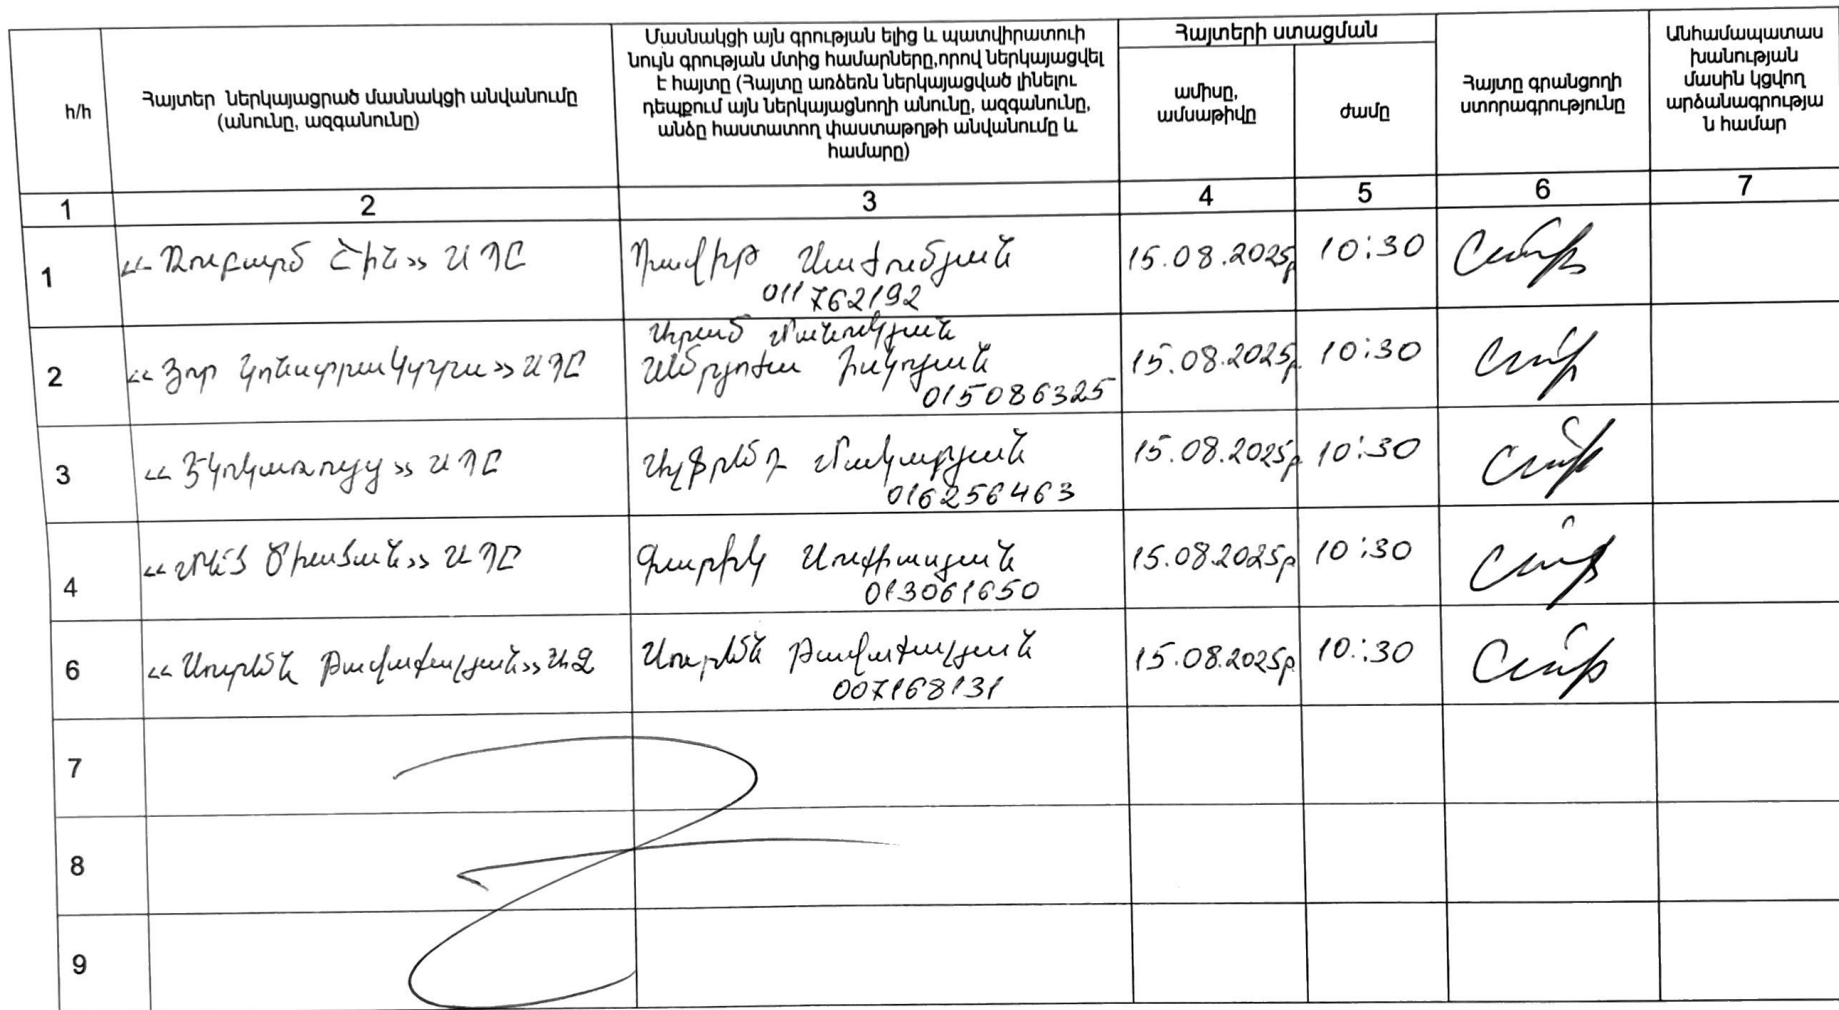 հ/հ
Հայտեր ներկայացրած մասնակցի անվանումը
(անունը, ազգանունը)
Մասնակցի այն գրության ելից և պատվիրատուի
նույն գրության մտից համարները,որով ներկայացվել
է հայտը (Հայտը առձեռն ներկայացված լինելու
դեպքում այն ներկայացնողի անունը, ազգանունը,
անձը հաստատող փաստաթղթի անվանումը և
համարը)
Հայտերի ստացման
ամիսը,
ամսաթիվը
ժամը
Հայտը գրանցողի
ստորագրությունը
Անհամապատաս
խանության
մասին կցվող
արձանագրությա
ն համար
1 2 3 4 5 6 7
1
«Ռուբարմ Շին» ՍՊԸ
Դավիթ
011762192
15.08.2025թ
10:30
2
ՍՊԸ
Արամ Մանուկյան
015086325
15.08.2025թ.
10:30
3
ՍՊԸ
Մակարյան
016256463
15.08.2025թ.
10:30
4
ՍՊԸ
Գարիկ
013061650
15.08.2025թ
10:30
6
«Սուրեն Թավաքալյան» ԱՁ
Սուրեն Թավաքալյան
007168131
15.08.2025թ.
10:30
7
8
9